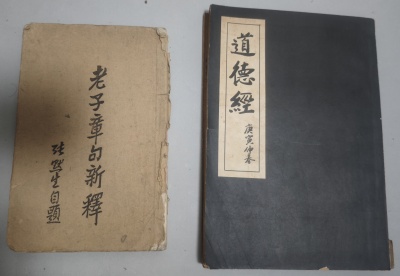 老子章句新釋
張默生自題
道德經
庚寅仲春